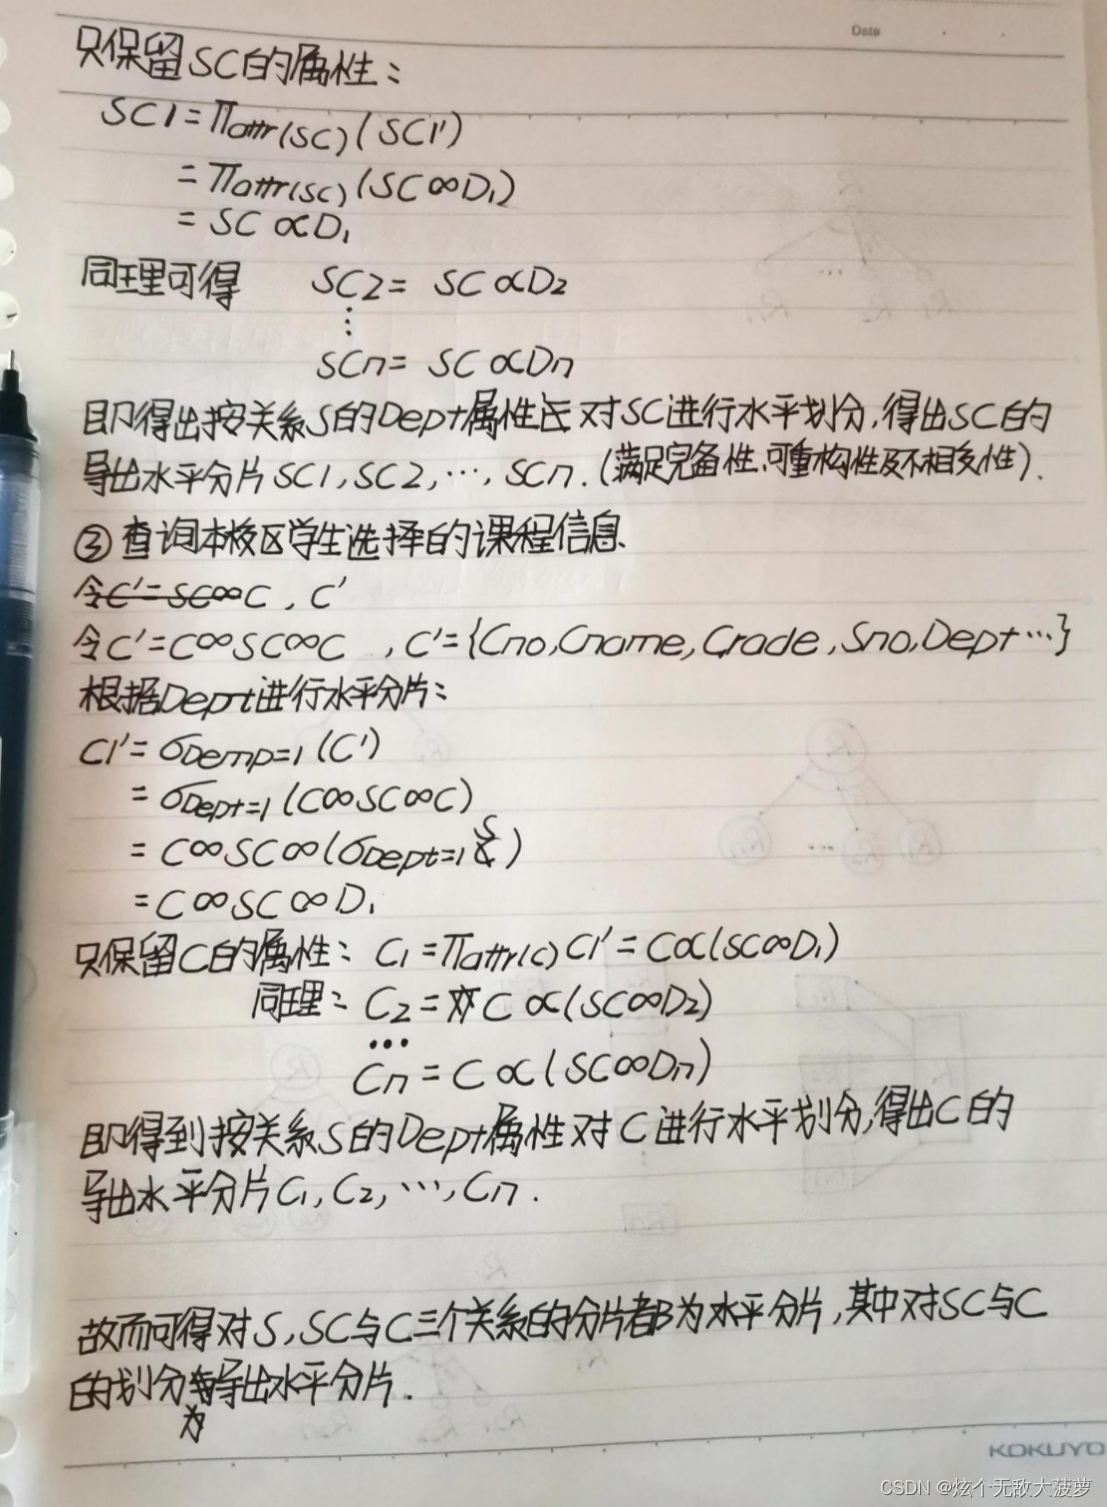 Date
只保留SC的属性:
SC1=π attr(SC)(SC1')
=π attr(SC)(SC∞D₁)
=SC∝D₁
同理可得 SC2= SC∝D₂
⋮
SCn= SC∝Dn
即得出按关系S的Dept属性 对SC进行水平划分,得出SC的
导出水平分片SC1,SC2,…,SCn.(满足完备性,可重构性及不相交性).
③查询本校区学生选择的课程信息.
令C'=SC∞C,C'
令C'=C∞SC∞C ,C'={Cno,Cname,Grade,Sno,Dept…}
根据Dept进行水平分片:
C1'=σDemp=1(C')
=σDept=1(C∞SC∞C)
=C∞SC∞(σDept=1 S)
=C∞SC∞D₁
只保留C的属性: C₁=π attr(C)C1'=C∝(SC∞D₁)
同理: C₂= C∝(SC∞D₂)
…
Cn=C∝(SC∞Dn)
即得到按关系S的Dept属性对C进行水平划分,得出C的
导出水平分片C₁,C₂,…,Cn.
故而可得对S,SC与C三个关系的分片都为水平分片,其中对SC与C
的划分为导出水平分片.
KOKUYO
CSDN @炫个无敌大菠萝